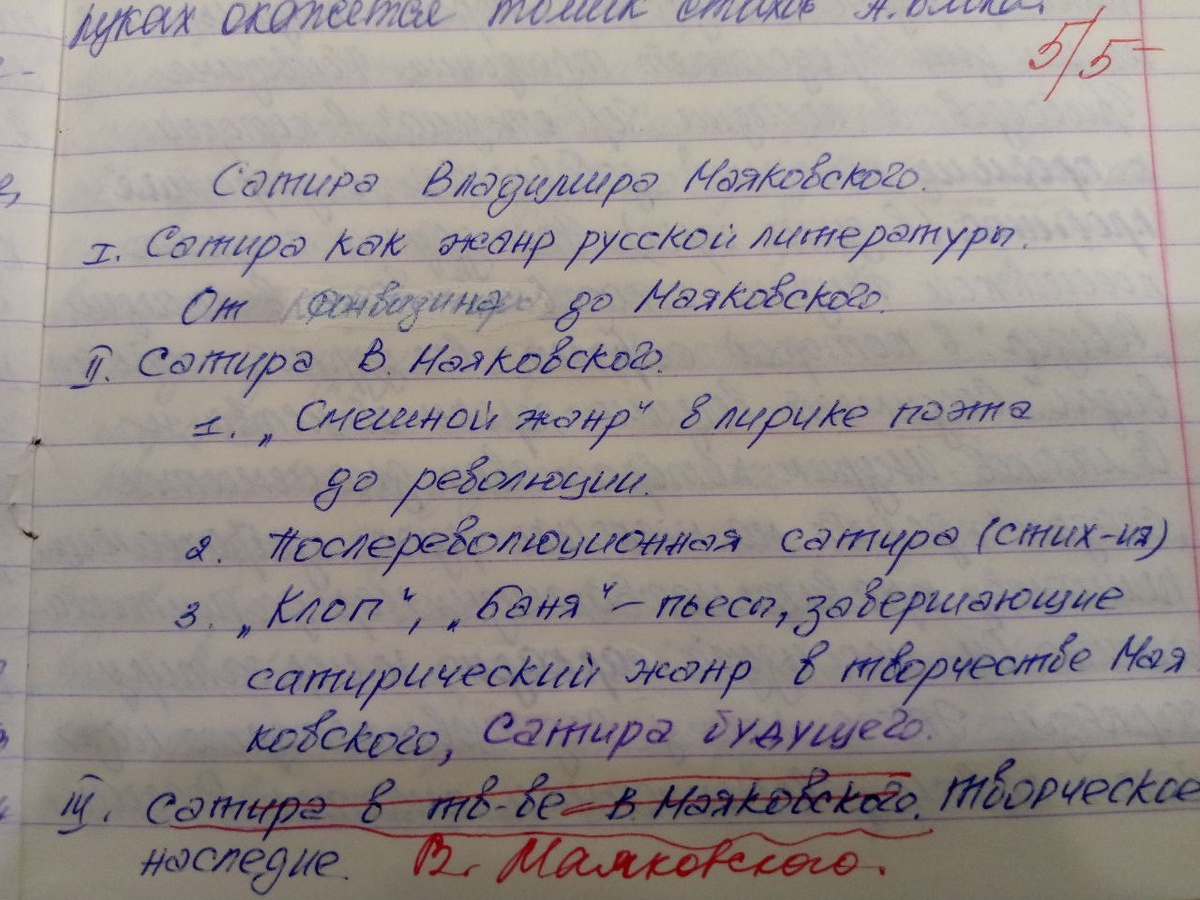 руках окажется томик стихов А. Блока.
5/5-
Сатира Владимира Маяковского.
I. Сатира как жанр русской литературы.
От Фонвизина до Маяковского.
II. Сатира В. Маяковского.
1. „Смешной жанр“ в лирике поэта
до революции.
2. Послереволюционная сатира (стих-ия)
3. „Клоп“, „Баня“ – пьесы, завершающие
сатирический жанр в творчестве Мая
ковского, Сатира будущего.
III. Сатира в тв-ве В. Маяковского. Творческое
наследие. В. Маяковского.